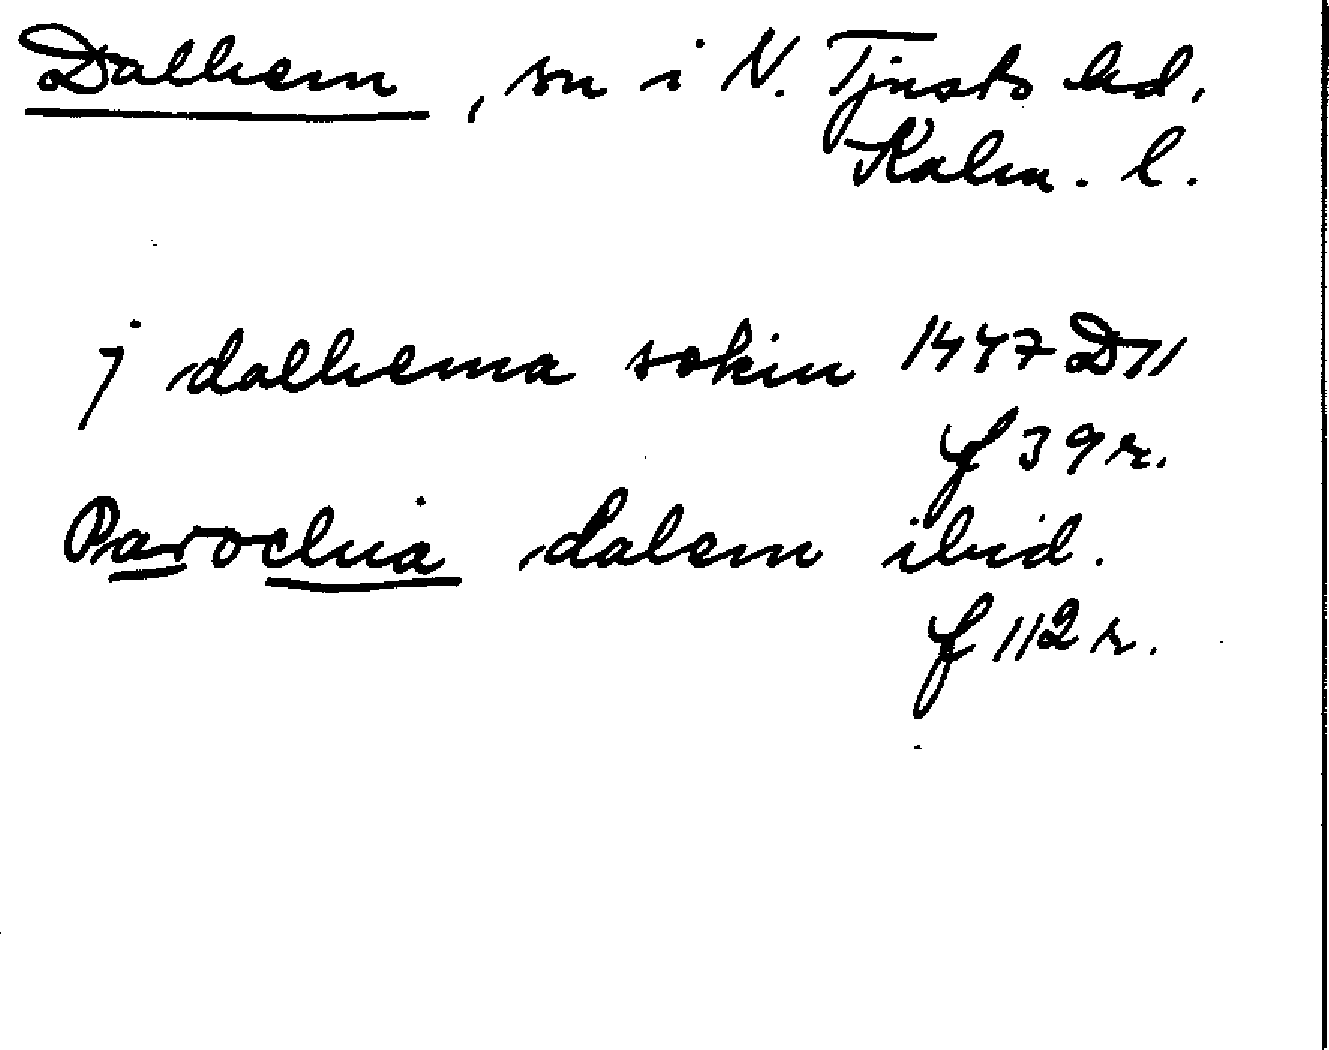 Dalhem, sn i N. Tjusts hd,
Kalm. l.
j dalhema sokin 1447 D11
f 39 r.
Parochia dalem ibid.
f 112 r.